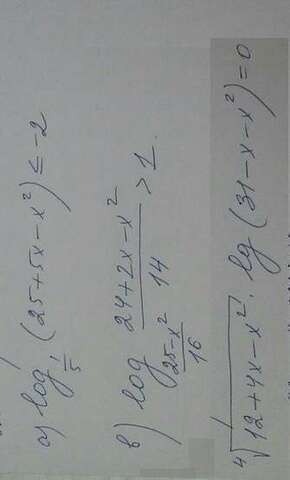 а) log_{1/5} (25+5x-x²) ≤ -2
в) log_{(25-x²)/16} (24+2x-x²)/14 > 1.
⁴√(12+4x-x²) · lg (31-x-x²) = 0